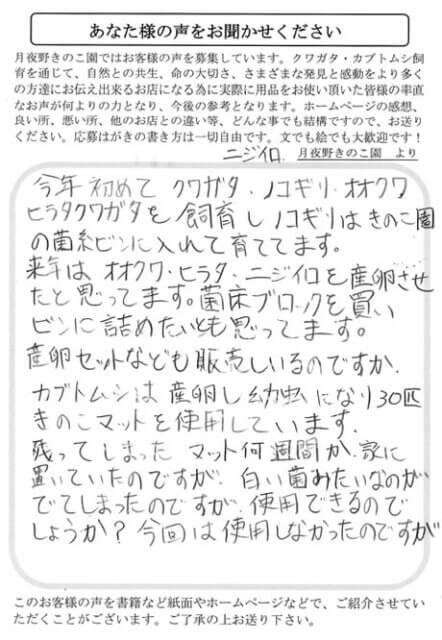 あなた様の声をお聞かせください
月夜野きのこ園ではお客様の声を募集しています。クワガタ・カブトムシ飼
育を通じて、自然との共生、命の大切さ、さまざまな発見と感動をより多く
の方達にお伝え出来るお店になる為に実際に用品をお使い頂いた皆様の率直
なお声が何よりの力となり、今後の参考となります。ホームページの感想、
良い所、悪い所、他のお店との違い等、どんな事でも結構ですので、お送り
ください。応募はがきの書き方は一切自由です。文でも絵でも大歓迎です!
月夜野きのこ園 より
ニジイロ
今年 初めて クワガタ・ノコギリ・オオクワ
ヒラタクワガタを 飼育し ノコギリは きのこ園
の菌糸ビンに入れて育ててます。
来年は オオクワ・ヒラタ・ニジイロを産卵させ
たと思ってます。菌床ブロックを買い
ビンに詰めたいとも思ってます。
産卵セットなども販売しいるのですか、
カブトムシは産卵し幼虫になり30匹
きのこマットを使用しています。
残ってしまった マット何週間か、家に
置いていたのですが、白い菌みたいなのが
でてしまったのですが、使用できるので
しょうか? 今回は使用しなかったのですが
このお客様の声を書籍など紙面やホームページなどで、ご紹介させてい
ただくことがございます。ご了承の上お送り下さい。